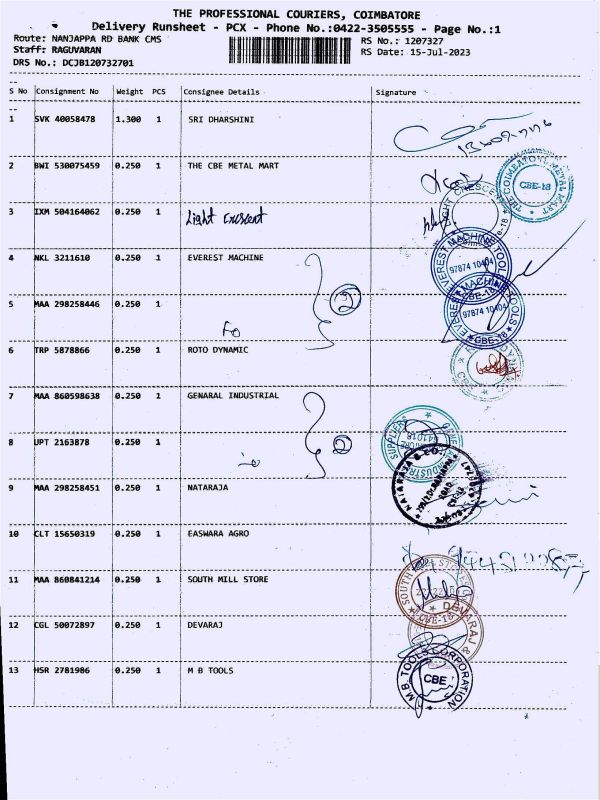 THE PROFESSIONAL COURIERS, COIMBATORE
Delivery Runsheet - PCX - Phone No.:0422-3505555 - Page No.:1
Route: NANJAPPA RD BANK CMS RS No.: 1207327
Staff: RAGUVARAN RS Date: 15-Jul-2023
DRS No.: DCJB120732701
S No Consignment No Weight PCS Consignee Details Signature
1 SVK 40058478 1.300 1 SRI DHARSHINI
2 BWI 530075459 0.250 1 THE CBE METAL MART
THE COIMBATORE METAL MART CBE-18
3 IXM 504164062 0.250 1 Light Crescent
4 NKL 3211610 0.250 1 EVEREST MACHINE
EVEREST MACHINE TOOLS 97874 10404 CBE-18
2
5 MAA 298258446 0.250 1
EVEREST MACHINE TOOLS 97874 10404 CBE-18
6 TRP 5878866 0.250 1 ROTO DYNAMIC
7 MAA 860598638 0.250 1 GENARAL INDUSTRIAL
2
8 UPT 2163878 0.250 1
9 MAA 298258451 0.250 1 NATARAJA
10 CLT 15650319 0.250 1 EASWARA AGRO
11 MAA 860841214 0.250 1 SOUTH MILL STORE
12 CGL 50072897 0.250 1 DEVARAJ
DEVARAJ &
13 HSR 2781986 0.250 1 M B TOOLS
M.B. TOOLS CORPORATION CBE